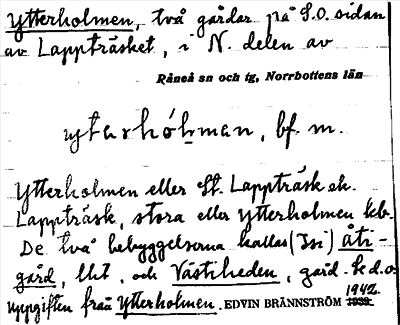 Ytterholmen, två gårdar på S.O. sidan
av Lappträsket, i N. delen av
Råneå sn och tg, Norrbottens län
ytarhólman, bf. m.
Ytterholmen eller St. Lappträsk ek.
Lappträsk, stora eller Ytterholmen kb.
De två bebyggelserna kallas (Isi) åti-
gård, Unt. och Västiheden, gård. Se d.o.
Uppgiften från Ytterholmen. EDVIN BRÄNNSTRÖM 1942.